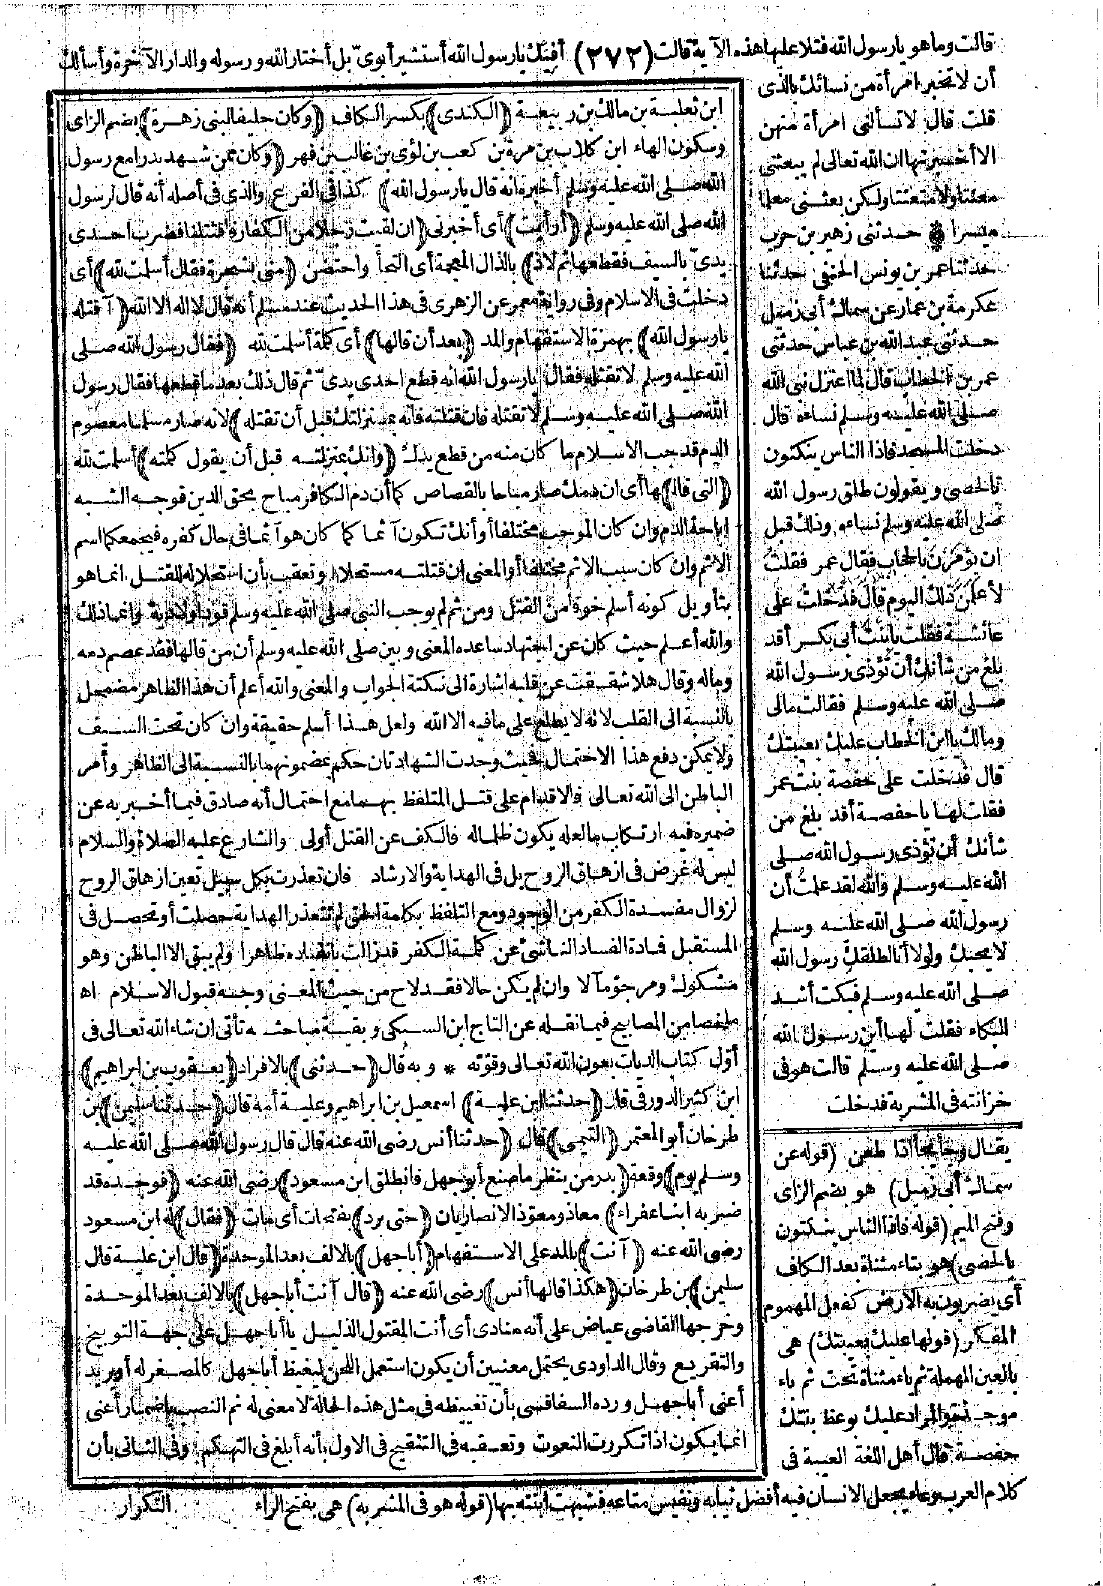 قالت وما هو يارسول الله فتلا عليها هذه الآية قالت (٢٧٢) أفيك يارسول الله أستشير أبوىّ بل أختار الله ورسوله والدار الآخرة وأسألك
أن لا تخبر امرأة من نسائك بالذى
قلت قال لا تسألنى امرأة منهن
الا أخبرتها ان الله تعالى لم يبعثنى
معنتا ولا متعنتا ولكن بعثنى معلما
ميسرا * حدثنى زهير بن حرب
حدثنا عمر بن يونس الحنفى حدثنا
عكرمة بن عمار عن سماك أبى زميل
حدثنى عبد الله بن عباس حدثنى
عمر بن الخطاب قال لما اعتزل نبى الله
صلى الله عليه وسلم نساءه قال
دخلت المسجد فاذا الناس ينكتون
بالحصى ويقولون طلق رسول الله
صلى الله عليه وسلم نساءه وذلك قبل
ان يؤمرن بالحجاب فقال عمر فقلت
لأعلمن ذلك اليوم قال فدخلت على
عائشة فقلت يا بنت أبى بكر أقد
بلغ من شأنك أن تؤذى رسول الله
صلى الله عليه وسلم فقالت مالى
ومالك يا ابن الخطاب عليك بعيبتك
قال فدخلت على حفصة بنت عمر
فقلت لها يا حفصة أقد بلغ من
شأنك أن تؤذى رسول الله صلى
الله عليه وسلم والله لقد علمت أن
رسول الله صلى الله عليه وسلم
لا يحبك ولولا أنا لطلقك رسول الله
صلى الله عليه وسلم فبكت أشد
البكاء فقلت لها أين رسول الله
صلى الله عليه وسلم قالت هو فى
خزانته فى المشربة فدخلت
ابن ثعلبة بن مالك بن ربيعة (الكندى) بكسر الكاف (وكان حليفا لبنى زهرة) بضم الزاى
وسكون الهاء ابن كلاب بن مرة بن كعب بن لؤى بن غالب بن فهر (وكان ممن شهد بدرا مع رسول
الله صلى الله عليه وسلم أخبره انه قال يارسول الله) كذا فى الفرع والذى فى أصله أنه قال لرسول
الله صلى الله عليه وسلم (أرأيت) أى أخبرنى (ان لقيت رجلا من الكفار فاقتتلنا فضرب احدى
يدىّ بالسيف فقطعها ثم لاذ) بالذال المعجمة أى التجأ واحتضن (منى بشجرة فقال أسلمت لله) أى
دخلت فى الاسلام وفى رواية معمر عن الزهرى فى هذا الحديث عند مسلم أنه قال لا اله الا الله (آقتله
يارسول الله) بهمزة الاستفهام والمد (بعد أن قالها) أى كلمة أسلمت لله (فقال رسول الله صلى
الله عليه وسلم لا تقتله فقال يارسول الله انه قطع احدى يدىّ ثم قال ذلك بعد ما قطعها فقال رسول
الله صلى الله عليه وسلم لا تقتله فان قتلته فانه بمنزلتك قبل أن تقتله) لانه صار مسلما معصوم
الدم قد جب الاسلام ما كان منه من قطع يدك (وانك بمنزلته قبل أن يقول كلمته) أسلمت لله
(التى قالـ)ـها أى ان دمك صار مباحا بالقصاص كما أن دم الكافر مباح بحق الدين فوجه الشبه
اباحة الدم وان كان الموجب مختلفا أو أنك تكون آثما كما كان هو آثما فى حال كفره فيجمعكما اسم
الاثم وان كان سبب الاثم مختلفا أو المعنى ان قتلته مستحلا وتعقب بأن استحلاله للقتل انما هو
بتأويل كونه أسلم خوفا من القتل ومن ثم لم يوجب النبى صلى الله عليه وسلم قودا ولا دية وانما ذلك
والله أعلم حيث كان عن اجتهاد ساعده المعنى وبين صلى الله عليه وسلم أن من قالها فقد عصم دمه
وماله وقال هلا شققت عن قلبه اشارة الى نكتة الجواب والمعنى والله أعلم أن هذا الظاهر مضمحل
بالنسبة الى القلب لانه لا يطلع على ما فيه الا الله ولعل هذا أسلم حقيقة وان كان تحت السيف
ولا يمكن دفع هذا الاحتمال فحيث وجدت الشهادتان حكم بمضمونهما بالنسبة الى الظاهر وأمر
الباطن الى الله تعالى فالاقدام على قتل المتلفظ بهما مع احتمال أنه صادق فيما أخبر به عن
ضميره فيه ارتكاب ما لعله يكون ظلما له فالكف عن القتل أولى والشارع عليه الصلاة والسلام
ليس له غرض فى ازهاق الروح بل فى الهداية والارشاد فان تعذرت بكل سبيل تعين ازهاق الروح
لزوال مفسدة الكفر من الوجود ومع التلفظ بكلمة الحق لم تتعذر الهداية حصلت أو تحصل فى
المستقبل فمادة الفساد الناشئ عن كلمة الكفر قد زالت بانقياده ظاهرا ولم يبق الا الباطن وهو
مشكوك ومرجو مآلا وان لم يكن حالا فقد لاح من حيث المعنى وجه قبول الاسلام اه
ملخصا من المصابيح فيما نقله عن التاج ابن السبكى وبقية مباحثه تأتى ان شاء الله تعالى فى
أول كتاب الديات بعون الله تعالى وقوته * وبه قال (حدثنى) بالافراد (يعقوب بن ابراهيم)
ابن كثير الدورقى قال (حدثنا ابن علية) اسمعيل بن ابراهيم وعلية أمه قال (حدثنا سليمن) بن
طرخان أبو المعتمر (التيمى) قال (حدثنا أنس رضى الله عنه قال قال رسول الله صلى الله عليه
وسلم يوم) وقعة (بدر من ينظر ما صنع أبو جهل فانطلق ابن مسعود) رضى الله عنه (فوجده قد
ضربه ابنا عفراء) معاذ ومعوّذ الانصاريان (حتى برد) بفتحات أى مات (فقال) له ابن مسعود
رضى الله عنه (آنت) بالمد على الاستفهام (أبا جهل) بالالف بعد الموحدة (قال ابن علية قال
سليمن) بن طرخان (هكذا قالها أنس) رضى الله عنه (قال آنت أبا جهل) بالالف بعد الموحدة
وخرجها القاضى عياض على أنه منادى أى أنت المقتول الذليل يا أبا جهل على جهة التوبيخ
والتقريع وقال الداودى يحتمل معنيين أن يكون استعمل اللحن ليغيظ أبا جهل كالمصغر له أو يريد
أعنى أبا جهل ورده السفاقسى بأن تغييظه فى مثل هذه الحالة لا معنى له ثم النصب باضمار أعنى
انما يكون اذا تكررت النعوت وتعقبه فى التنقيح فى الاول بأنه أبلغ فى التهكم وفى الثانى بأن
يقال وجا يجأ اذا طعن (قوله عن
سماك أبى زميل) هو بضم الزاى
وفتح الميم (قوله فاذا الناس ينكتون
بالحصى) هو بتاء مثناة بعد الكاف
أى يضربون به الارض كفعل المهموم
المفكر (قولها عليك بعيبتك) هى
بالعين المهملة ثم ياء مثناة تحت ثم باء
موحدة والمراد عليك بوعظ بنتك
حفصة قال أهل اللغة العيبة فى
كلام العرب وعاء يجعل الانسان فيه أفضل ثيابه ونفيس متاعه فشبهت ابنته بها (قوله هو فى المشربة) هى بفتح الراء
التكرار